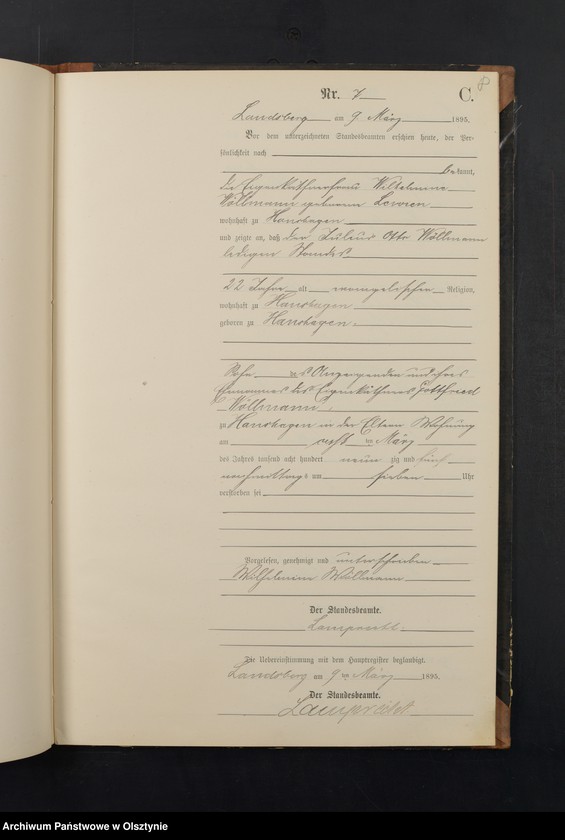 Nr. 7
C.
8
Landsberg am 9 März 1895.
Vor dem unterzeichneten Standesbeamten erschien heute, der Per-
sönlichkeit nach
bekannt,
die Eigenkäthnerfrau Wilhelmine
Wöllmann geborene
wohnhaft zu Hanshagen
und zeigte an, daß der Otto Wöllmann
ledigen Standes
22 Jahre alt evangelischer Religion,
wohnhaft zu Hanshagen
geboren zu Hanshagen
Sohn des Anzeigenden und ihres
Ehemannes des Eigenkäthners Gottfried
Wöllmann,
zu Hanshagen in der Eltern Wohnung
am acht ten März
des Jahres tausend acht hundert neun zig und fünf
nachmittags um sieben Uhr
verstorben sei
Vorgelesen, genehmigt und unterschrieben
Wilhelmine Wöllmann
Der Standesbeamte.
Lamprecht
Die Uebereinstimmung mit dem Hauptregister beglaubigt.
Landsberg am 9 ten März 1895.
Der Standesbeamte.
Lamprecht
Archiwum Państwowe w Olsztynie